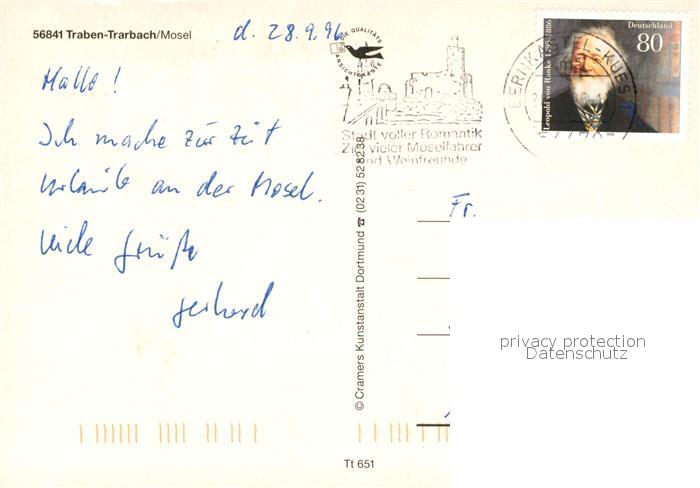 56841 Traben-Trarbach/Mosel
d. 28.9.96
DIE QUALITÄTS
ANSICHTSKARTE
Hallo!
Ich mache zur Zeit
Urlaub an der Mosel.
Viele Grüße
Gerhard
Stadt voller Romantik
Ziel vieler Moselfahrer
und Weinfreunde
BERNKASTEL-KUES
Deutschland
80
Leopold von Ranke 1795-1886
Fr.
© Cramers Kunstanstalt Dortmund ☎ (0231) 528238
privacy protection
Datenschutz
Tt 651